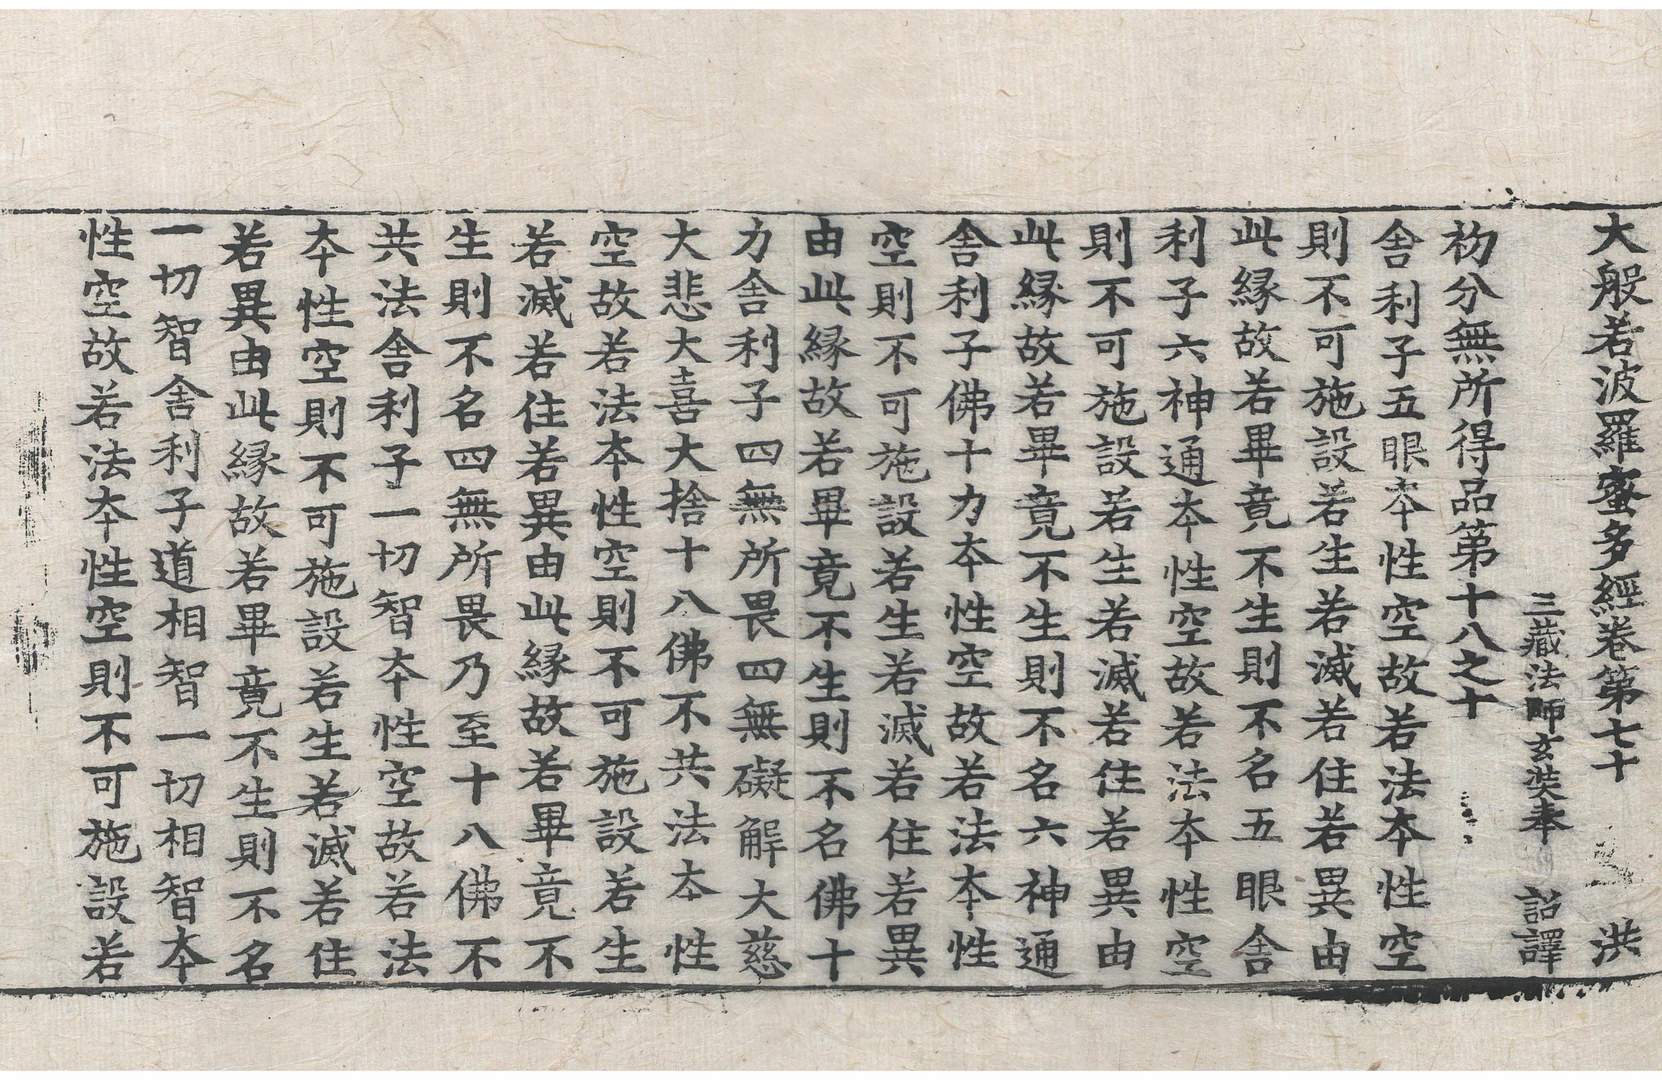 大般若波羅蜜多經卷第七十　洪
三藏法師玄奘奉　詔譯
初分無所得品第十八之十
舍利子五眼本性空故若法本性空
則不可施設若生若滅若住若異由
此緣故若畢竟不生則不名五眼舍
利子六神通本性空故若法本性空
則不可施設若生若滅若住若異由
此緣故若畢竟不生則不名六神通
舍利子佛十力本性空故若法本性
空則不可施設若生若滅若住若異
由此緣故若畢竟不生則不名佛十
力舍利子四無所畏四無礙解大慈
大悲大喜大捨十八佛不共法本性
空故若法本性空則不可施設若生
若滅若住若異由此緣故若畢竟不
生則不名四無所畏乃至十八佛不
共法舍利子一切智本性空故若法
本性空則不可施設若生若滅若住
若異由此緣故若畢竟不生則不名
一切智舍利子道相智一切相智本
性空故若法本性空則不可施設若